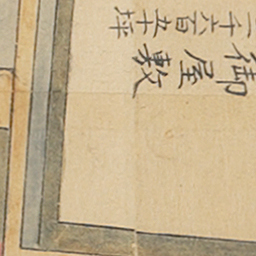 御屋敷
千六百五十坪